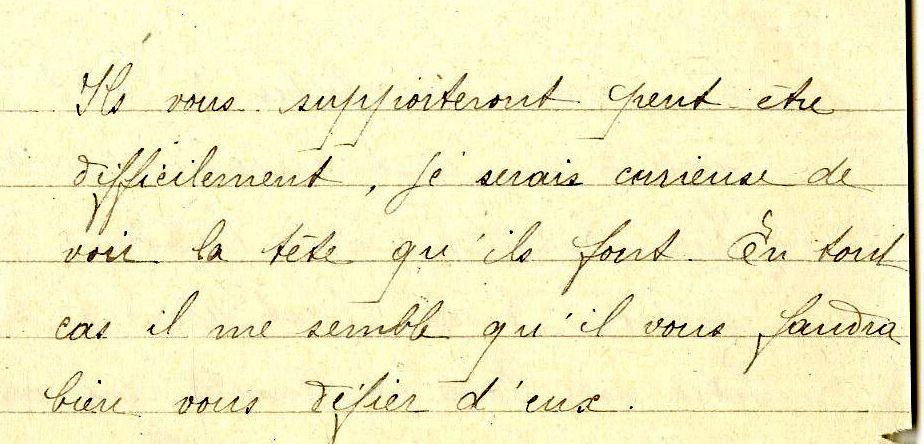 Ils vous supporteront peut être
difficilement, je serais curieuse de
voir la tête qu'ils font. En tout
cas il me semble qu'il vous faudra
bien vous défier d'eux.